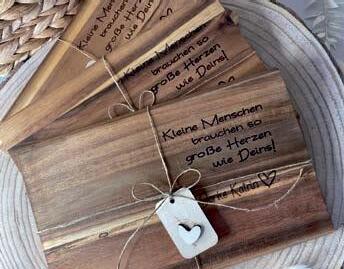 Kleine Menschen
brauchen so
große Herzen
wie Deins!
Kleine Menschen
brauchen so
große Herzen
wie Deins!
Kleine Menschen
brauchen so
große Herzen
wie Deins!
Katrin